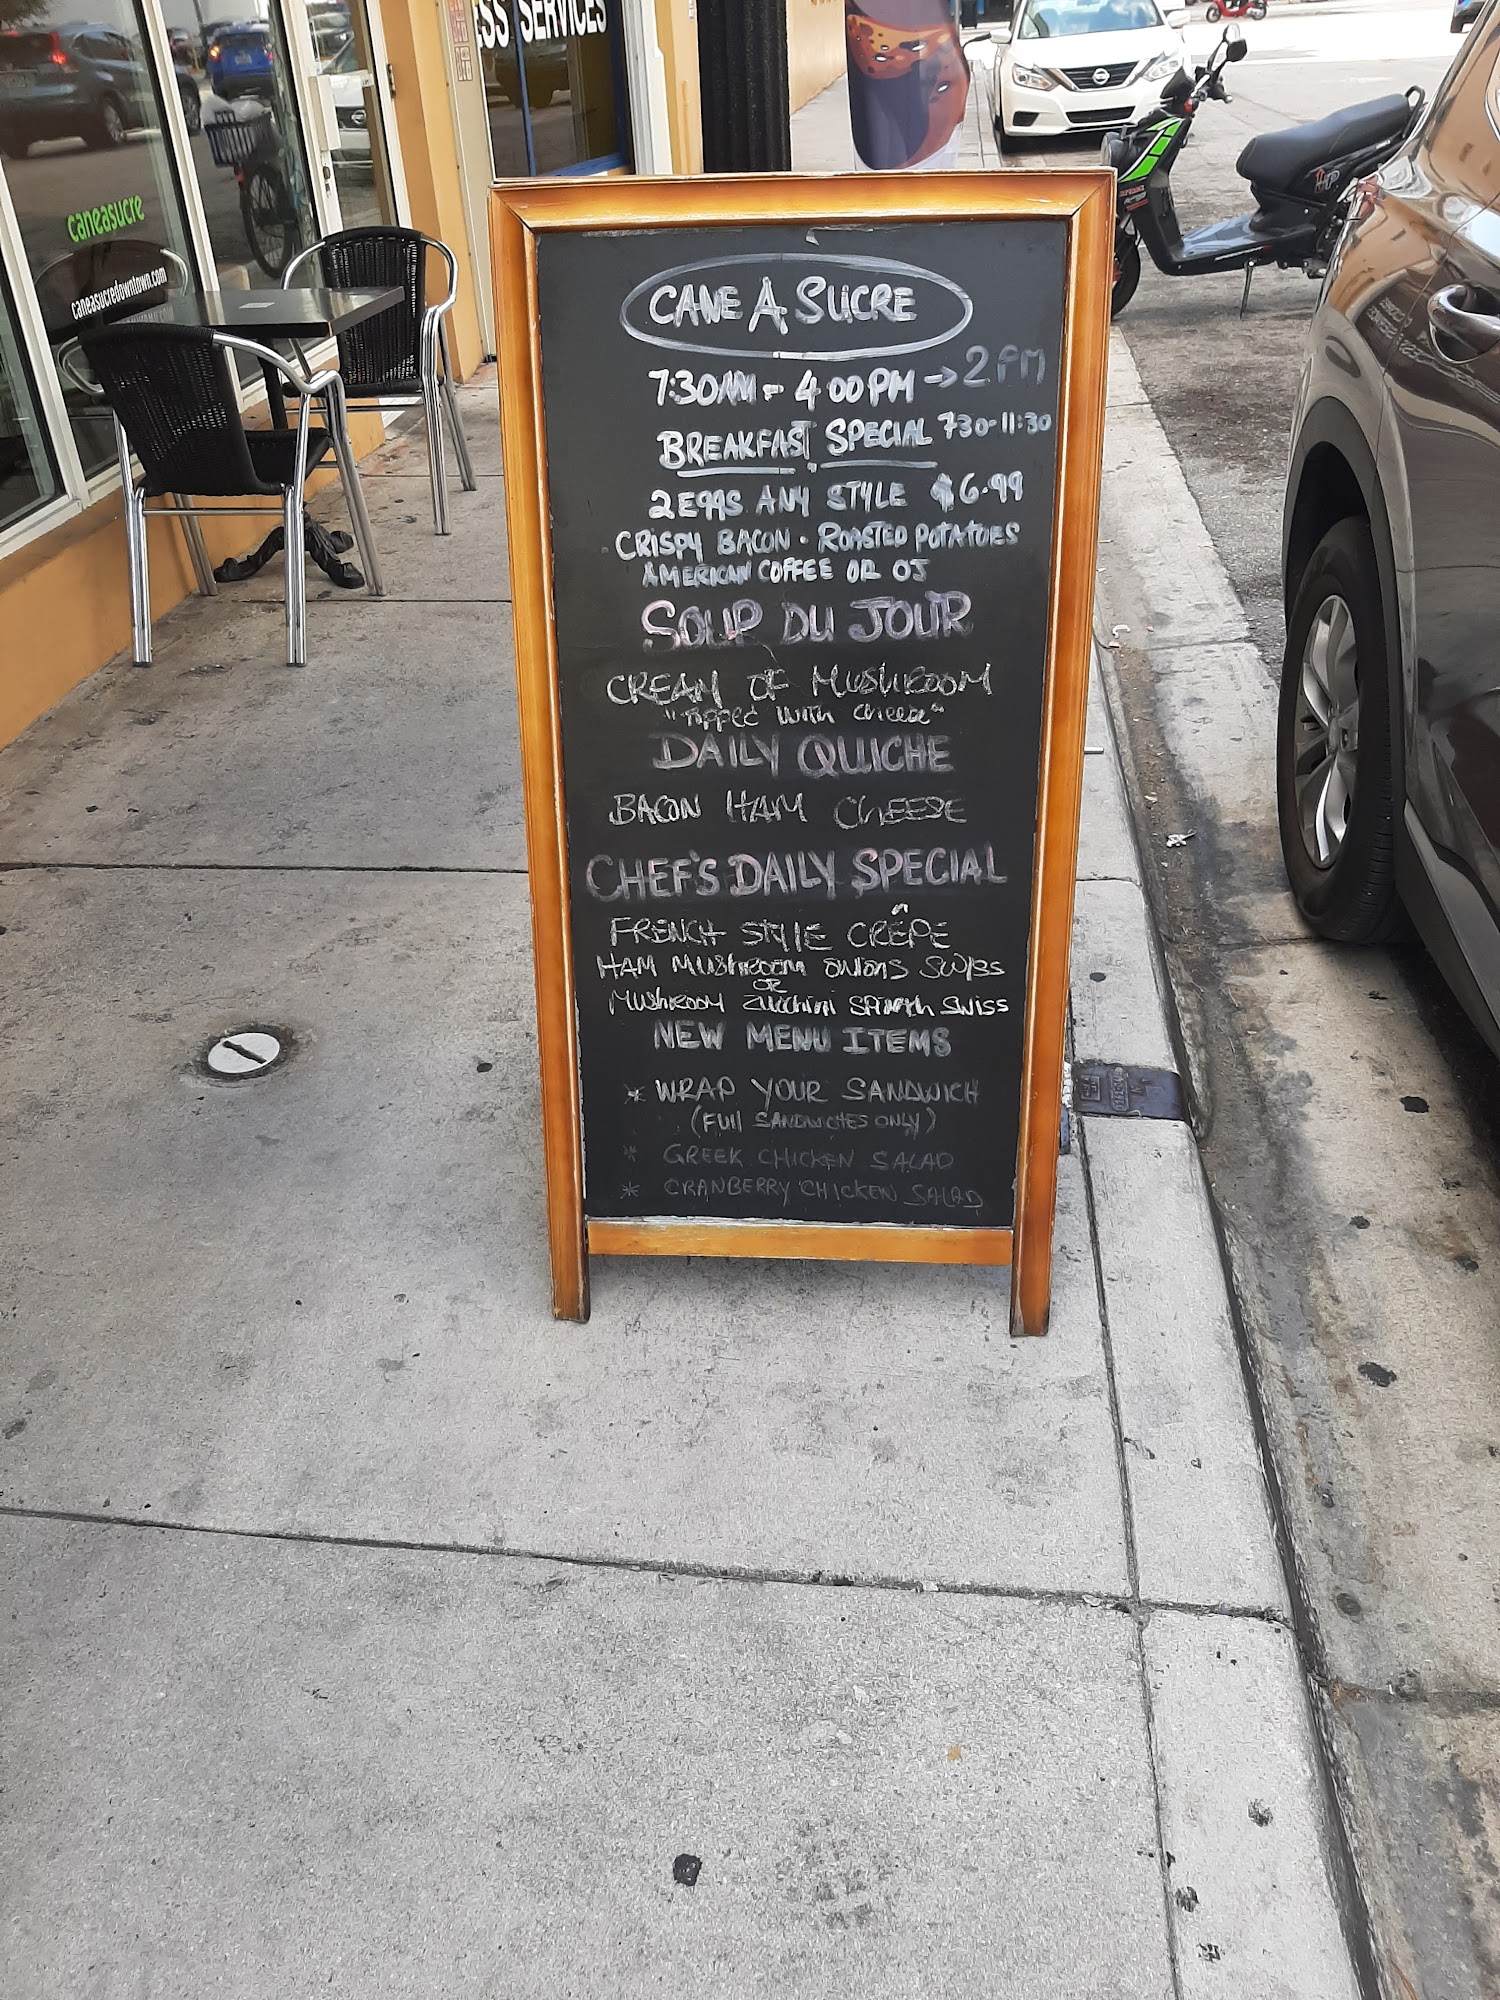 ESS SERVICES
caneasucre
caneasucredowntown.com
CANE A SUCRE
7:30AM - 4:00PM → 2 PM
BREAKFAST SPECIAL 730-11:30
2 Eggs ANY STYLE $6.99
CRISPY BACON · ROASTED POTATOES
AMERICAN COFFEE OR OJ
SOUP DU JOUR
CREAM OF MUSHROOM
"Topped with cheese"
DAILY QUICHE
BACON HAM CHEESE
CHEF'S DAILY SPECIAL
FRENCH STYLE CRÊPE
HAM MUSHROOM onions SWISS
OR
MUSHROOM Zucchini Swiss
NEW MENU ITEMS
* WRAP YOUR SANDWICH
(FUll SANDWICHES ONLY)
* GREEK CHICKEN SALAD
* CRANBERRY CHICKEN SALAD